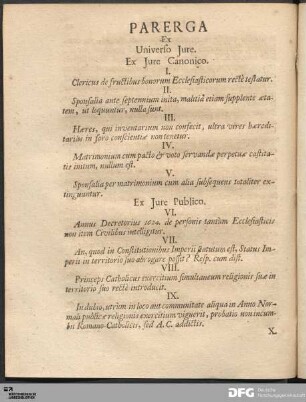 PARERGA
Ex
Universo Jure.
Ex Jure Canonico.
I.
Clericus de fructibus bonorum Ecclesiasticorum rectè testatur.
II.
Sponsalia ante septennium inita, malitiâ etiam supplente æta-
tem, ut loquuntur, nulla sunt.
III.
Hæres, qui inventarium non confecit, ultra vires hæredi-
tarias in foro conscientiæ non tenetur.
IV.
Matrimonium cum pacto & voto servandæ perpetuæ castita-
tis initum, nullum est.
V.
Sponsalia per matrimonium cum alia subsequens totaliter ex-
tinguuntur.
Ex Jure Publico.
VI.
Annus Decretorius 1624. de personis tantùm Ecclesiasticis
non item Civilibus intelligitur.
VII.
An, quod in Constitutionibus Imperii statutum est, Status Im-
perii in territorio suo abrogare possit? Resp. cum dist.
VIII.
Princeps Catholicus exercitium simultaneum religionis suæ in
territorio suo rectè introducit.
IX.
In dubio, utrùm in loco aut communitate aliqua in Anno Nor-
mali publicæ religionis exercitium viguerit, probatio non incum-
bit Romano-Catholicis, sed A. C. addictis.
X.
DFG
Deutsche
Forschungsgemeinschaft